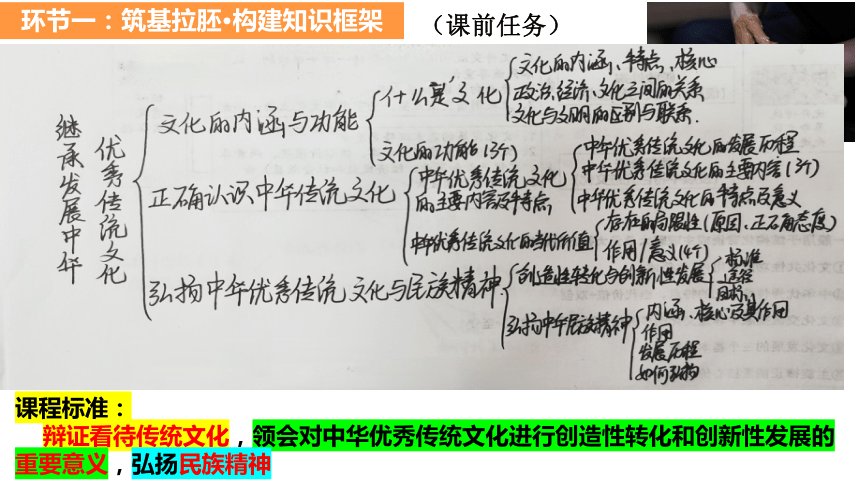 环节一：筑基拉胚•构建知识框架
（课前任务）
继承发展中华
优秀传统文化
文化的内涵与功能
什么是文化
文化的内涵、特点、核心
政治、经济、文化之间的关系
文化与文明的区别与联系.
文化的功能(3个)
正确认识中华传统文化
中华优秀传统文化
的主要内容及特点
中华优秀传统文化的发展历程
中华优秀传统文化的主要内容(3个)
中华优秀传统文化的特点及意义
中华优秀传统文化的当代价值
存在的局限性(原因、正确态度)
作用/意义(4个)
弘扬中华优秀传统文化与民族精神
创造性转化与创新性发展
标准
途径
目标
弘扬中华民族精神
内涵、核心及其作用
作用
发展历程
如何弘扬
课程标准：
辩证看待传统文化，领会对中华优秀传统文化进行创造性转化和创新性发展的
重要意义，弘扬民族精神